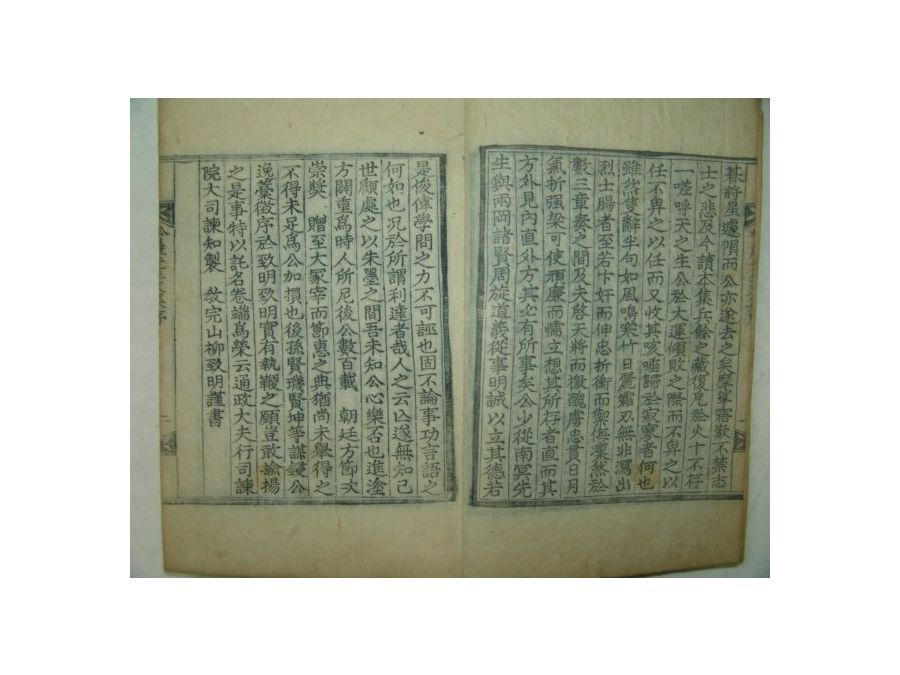 將星遽隕而公亦遂去之矣摩挲寤歎不禁志
士之悲及今讀本集兵餘之藏復厄於火十不存
一嗟呼天之生公於大運傾敗之際而不畀之以
任不畀之以任而又收其咳唾歸於寂寥者何也
雖然隻辭半句如風鳴寒竹日麗霜刃無非瀉出
烈士腸者至若卞奸而伸忠折衝而禦侮凜然於
數三章奏之間及夫啓天將而檄醜虜忠貫日月
氣折强梁可使頑廉而懦立想其所存者直而其
方外見內直外方其必有所事矣公少從南冥先
生與兩岡諸賢周旋道義從事明誠以立其德若
是俊偉學問之力不可誣也固不論事功言語之
何如也況於所謂利達者哉人之云亾遂無知己
世顧處之以朱墨之間吾未知公心樂否也進塗
方闢重爲時人所尼後公數百載 朝廷方節次
崇奬 贈至大冢宰而節惠之典猶尚未舉得之
不得未足爲公加損也後孫賢璣賢坤等謀鋟公
逸藁徵序於致明致明實有執鞭之願豈敢揄揚
之是事特以託名卷端爲榮云通政大夫行司諫
院大司諫知製 敎完山柳致明謹書